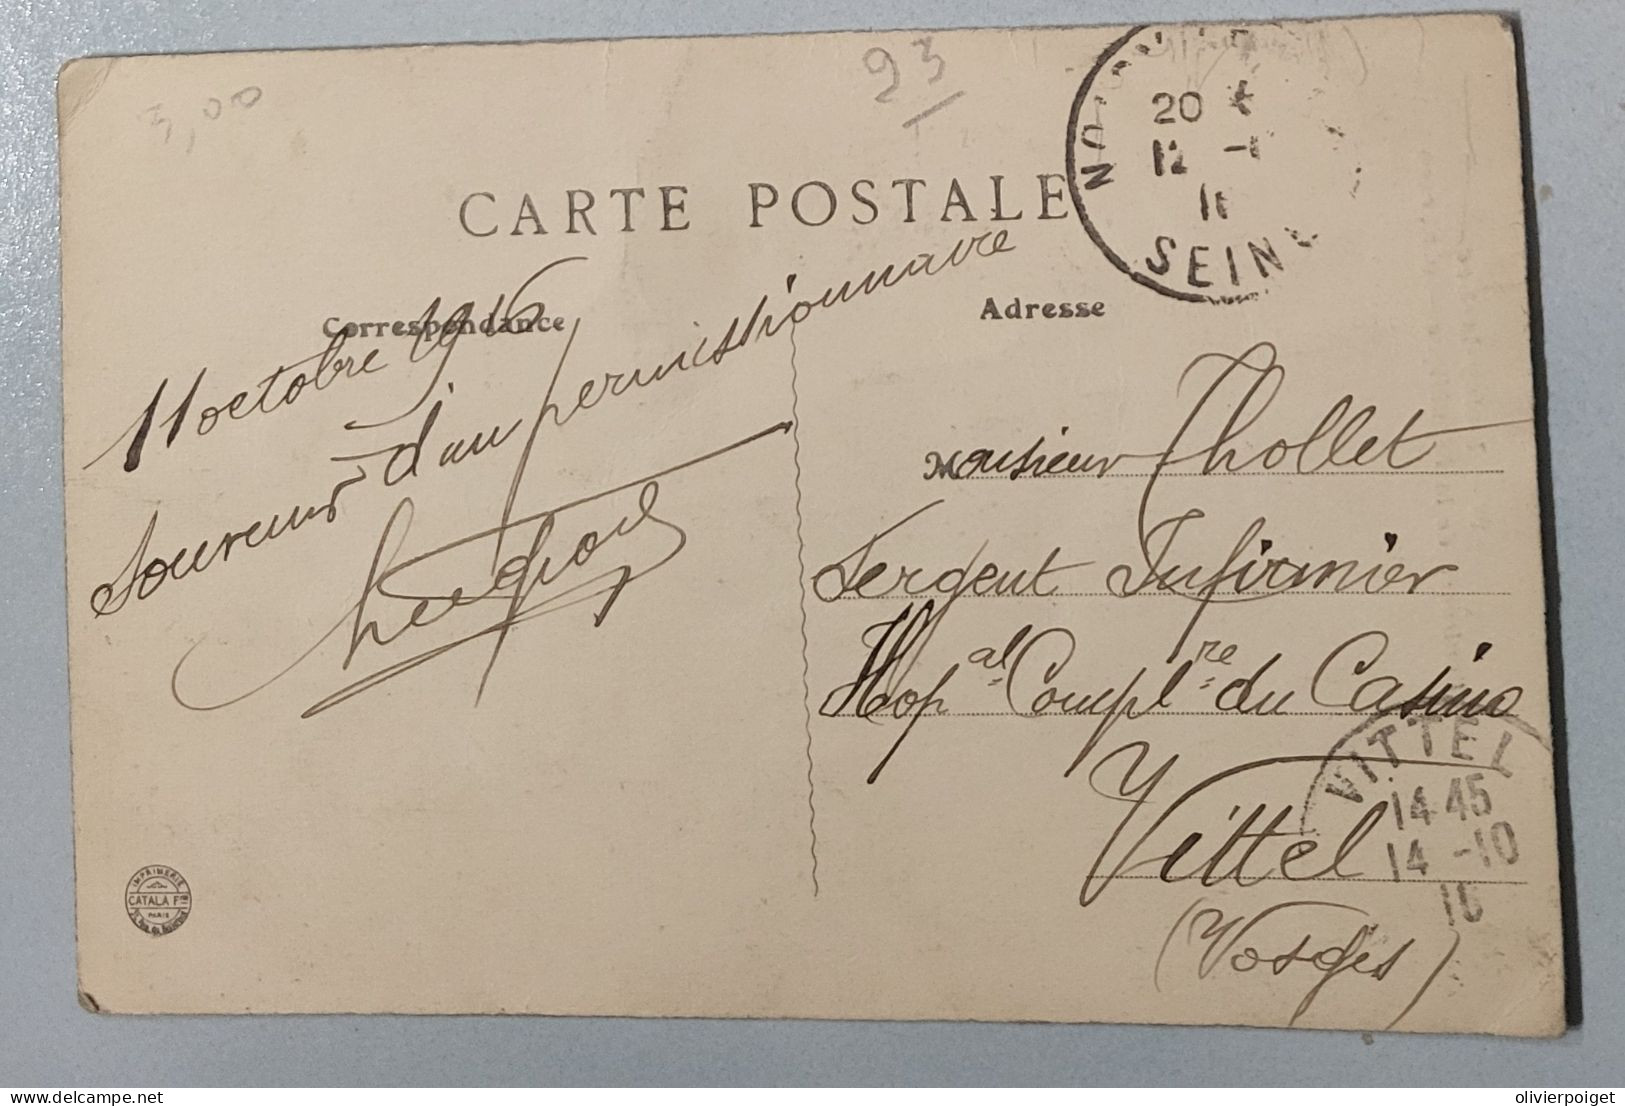 3,00
93
CARTE POSTALE
Correspondance
Adresse
20
12 -1
SEIN
11 octobre 1916
Souvenir d'un permissionnaire
Monsieur Chollet
Sergent Infirmier
Hop al Compl re du Casino
Vittel
(Vosges)
VITTEL
14 45
14 -10
16
IMPRIMERIE
CATALA F
PARIS
olivierpoiget